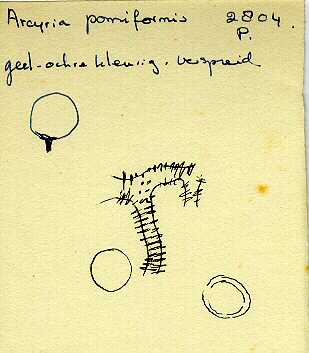 Arcyria pomiformis 2804.
P.
geel-ochre kleurig, verspreid